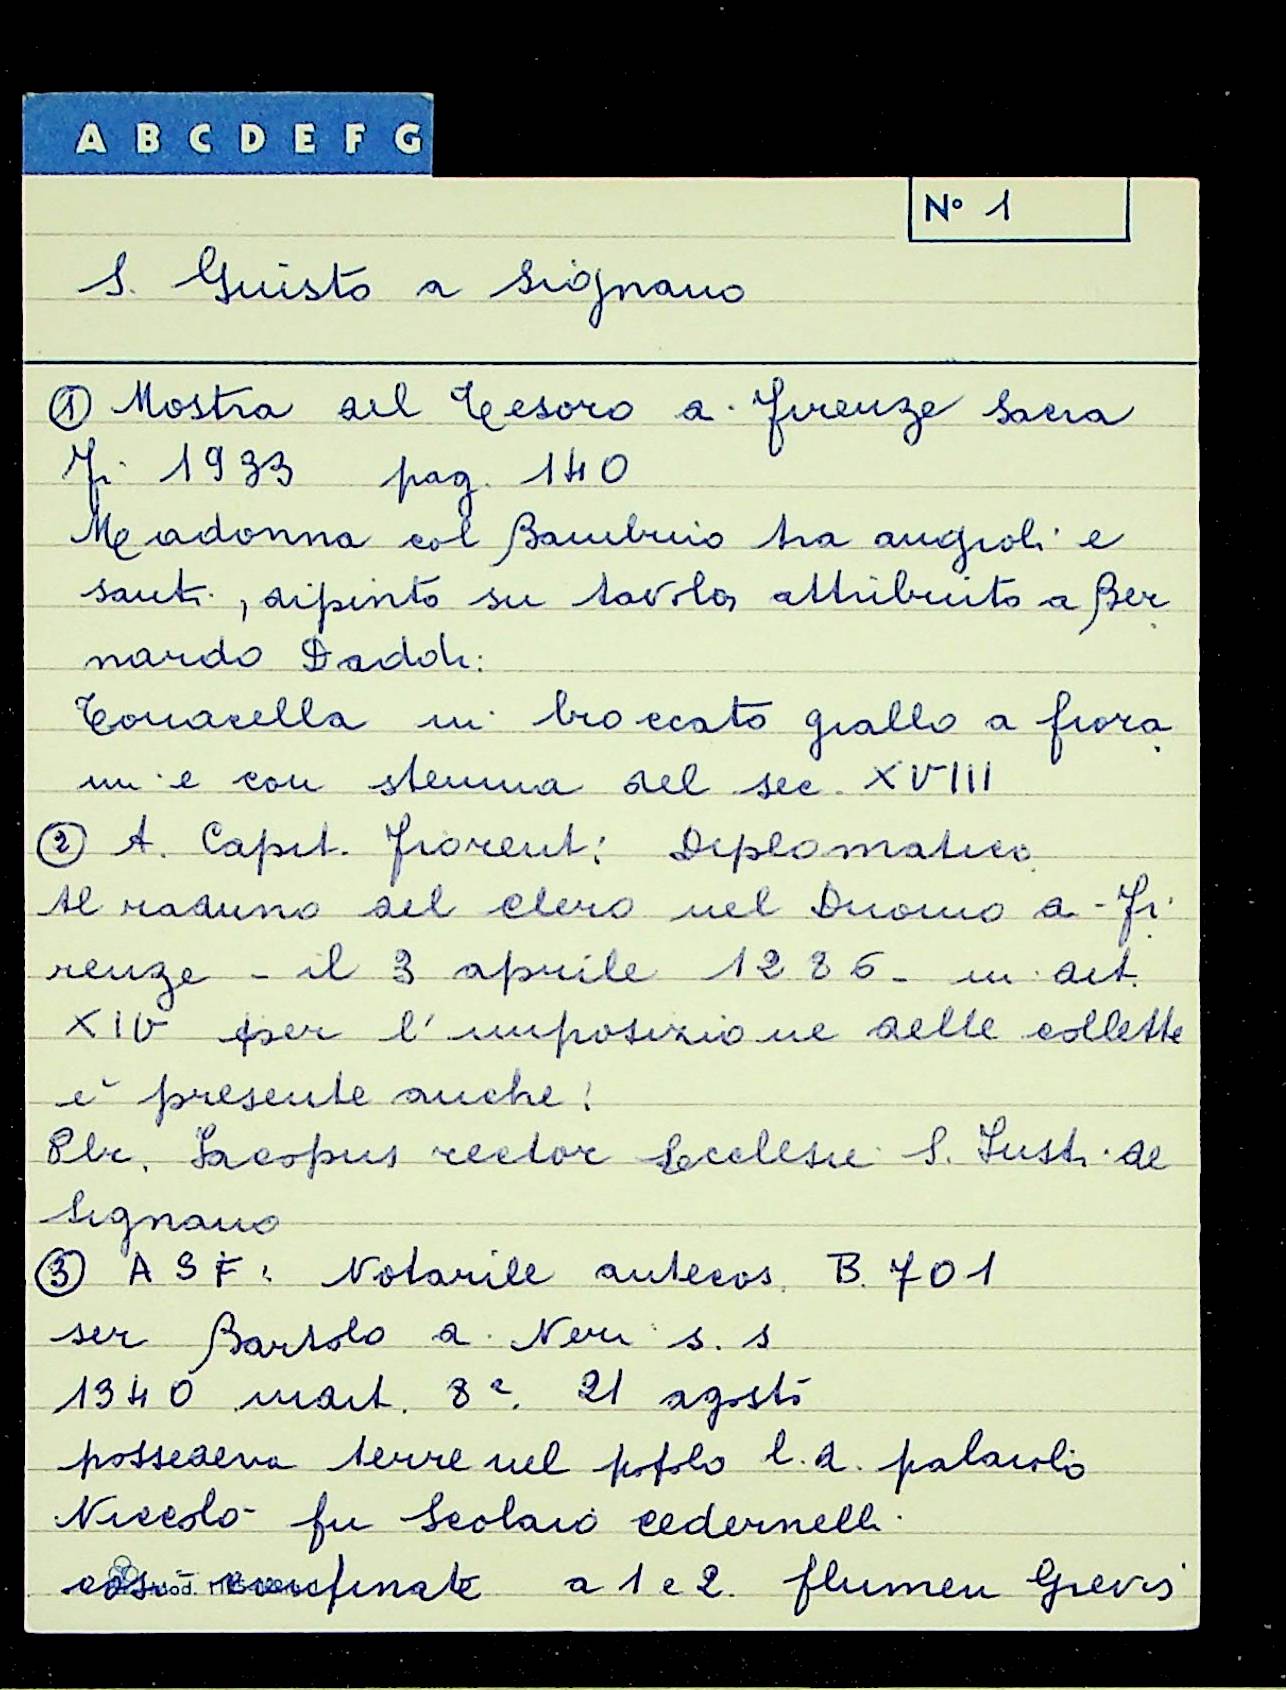 A B C D E F G
N° 1
S. Giusto a Signano
① Mostra del Tesoro di Firenze Sacra
Fi. 1933 pag. 140
Madonna col Bambino tra angioli e
santi, dipinto su tavola attribuito a Ber
nardo Daddi:
Tonacella in broccato giallo a fiora
mi e con stemma del sec. XVIII
② A. Capit. Fiorent: Diplomatico
Al raduno del clero nel Duomo di Fi
renze - il 3 aprile 1286 - in dict.
XIV per l'imposizione delle collette
è presente anche:
Pbr. Iacopus rector Ecclesie S. Iusti de
Signano
③ ASF: Notarile antecos. B. 701
ser Bartolo di Neri s. s
1340 indict. 8ª. 21 agosto
possedeva terre nel popolo l. d. palaiolo
Niccolò fu Scolaio Cedernelli
così confinate a 1 e 2. flumen Grevis